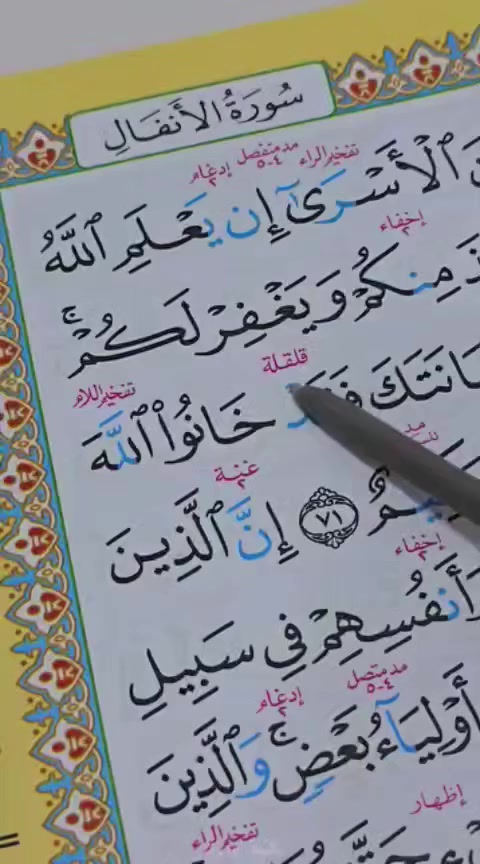 سُورَةُ الأَنفَالِ
تفخيم الراء مد منفصل ٤-٥ إدغام ٢
ٱلْأَسْرَىٰٓ إِن يَعْلَمِ ٱللَّهُ
إخفاء ٢
مِنكُمْ وَيَغْفِرْ لَكُمْ ۚ
قلقلة تفخيم اللام
خَانُوا۟ ٱللَّهَ
غنة ٢
٧١ إِنَّ ٱلَّذِينَ
إخفاء ٢
أَنفُسِهِمْ فِى سَبِيلِ
مد متصل ٤-٥ إدغام ٢
أَوْلِيَآءُ بَعْضٍ ۚ وَٱلَّذِينَ
إظهار
تفخيم الراء